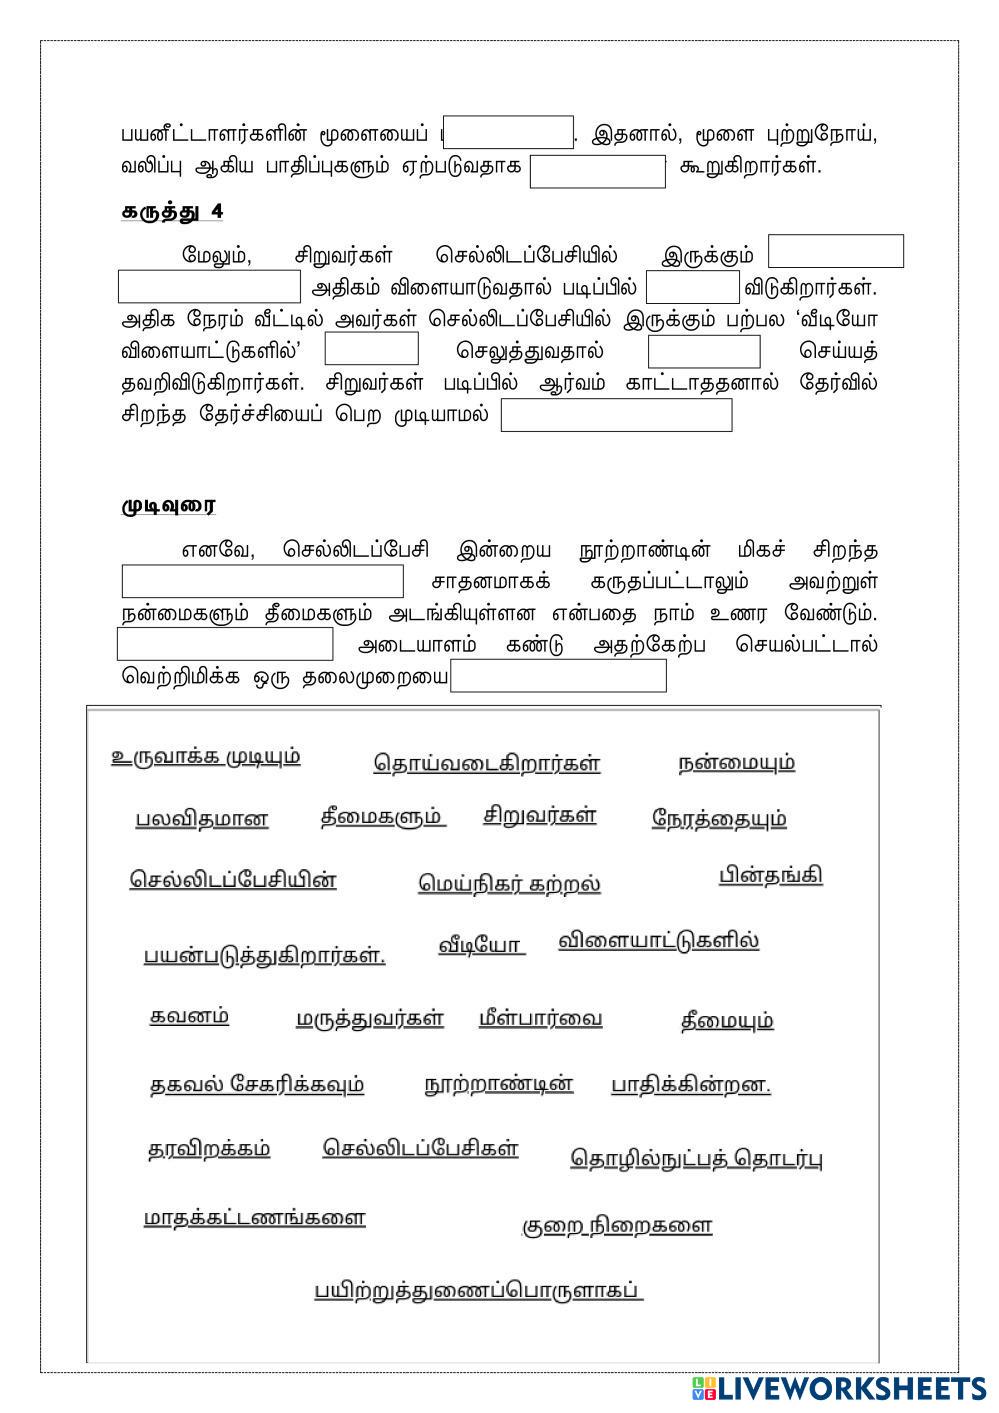 பயனீட்டாளர்களின் மூளையைப் . இதனால், மூளை புற்றுநோய்,
வலிப்பு ஆகிய பாதிப்புகளும் ஏற்படுவதாக கூறுகிறார்கள்.
கருத்து 4
மேலும், சிறுவர்கள் செல்லிடப்பேசியில் இருக்கும்
அதிகம் விளையாடுவதால் படிப்பில் விடுகிறார்கள்.
அதிக நேரம் வீட்டில் அவர்கள் செல்லிடப்பேசியில் இருக்கும் பற்பல ‘வீடியோ
விளையாட்டுகளில்’ செலுத்துவதால் செய்யத்
தவறிவிடுகிறார்கள். சிறுவர்கள் படிப்பில் ஆர்வம் காட்டாததனால் தேர்வில்
சிறந்த தேர்ச்சியைப் பெற முடியாமல்
முடிவுரை
எனவே, செல்லிடப்பேசி இன்றைய நூற்றாண்டின் மிகச் சிறந்த
சாதனமாகக் கருதப்பட்டாலும் அவற்றுள்
நன்மைகளும் தீமைகளும் அடங்கியுள்ளன என்பதை நாம் உணர வேண்டும்.
அடையாளம் கண்டு அதற்கேற்ப செயல்பட்டால்
வெற்றிமிக்க ஒரு தலைமுறையை
உருவாக்க முடியும் தொய்வடைகிறார்கள் நன்மையும்
பலவிதமான தீமைகளும் சிறுவர்கள் நேரத்தையும்
செல்லிடப்பேசியின் மெய்நிகர் கற்றல் பின்தங்கி
பயன்படுத்துகிறார்கள். வீடியோ விளையாட்டுகளில்
கவனம் மருத்துவர்கள் மீள்பார்வை தீமையும்
தகவல் சேகரிக்கவும் நூற்றாண்டின் பாதிக்கின்றன.
தரவிறக்கம் செல்லிடப்பேசிகள் தொழில்நுட்பத் தொடர்பு
மாதக்கட்டணங்களை குறை நிறைகளை
பயிற்றுத்துணைப்பொருளாகப்
LIVEWORKSHEETS